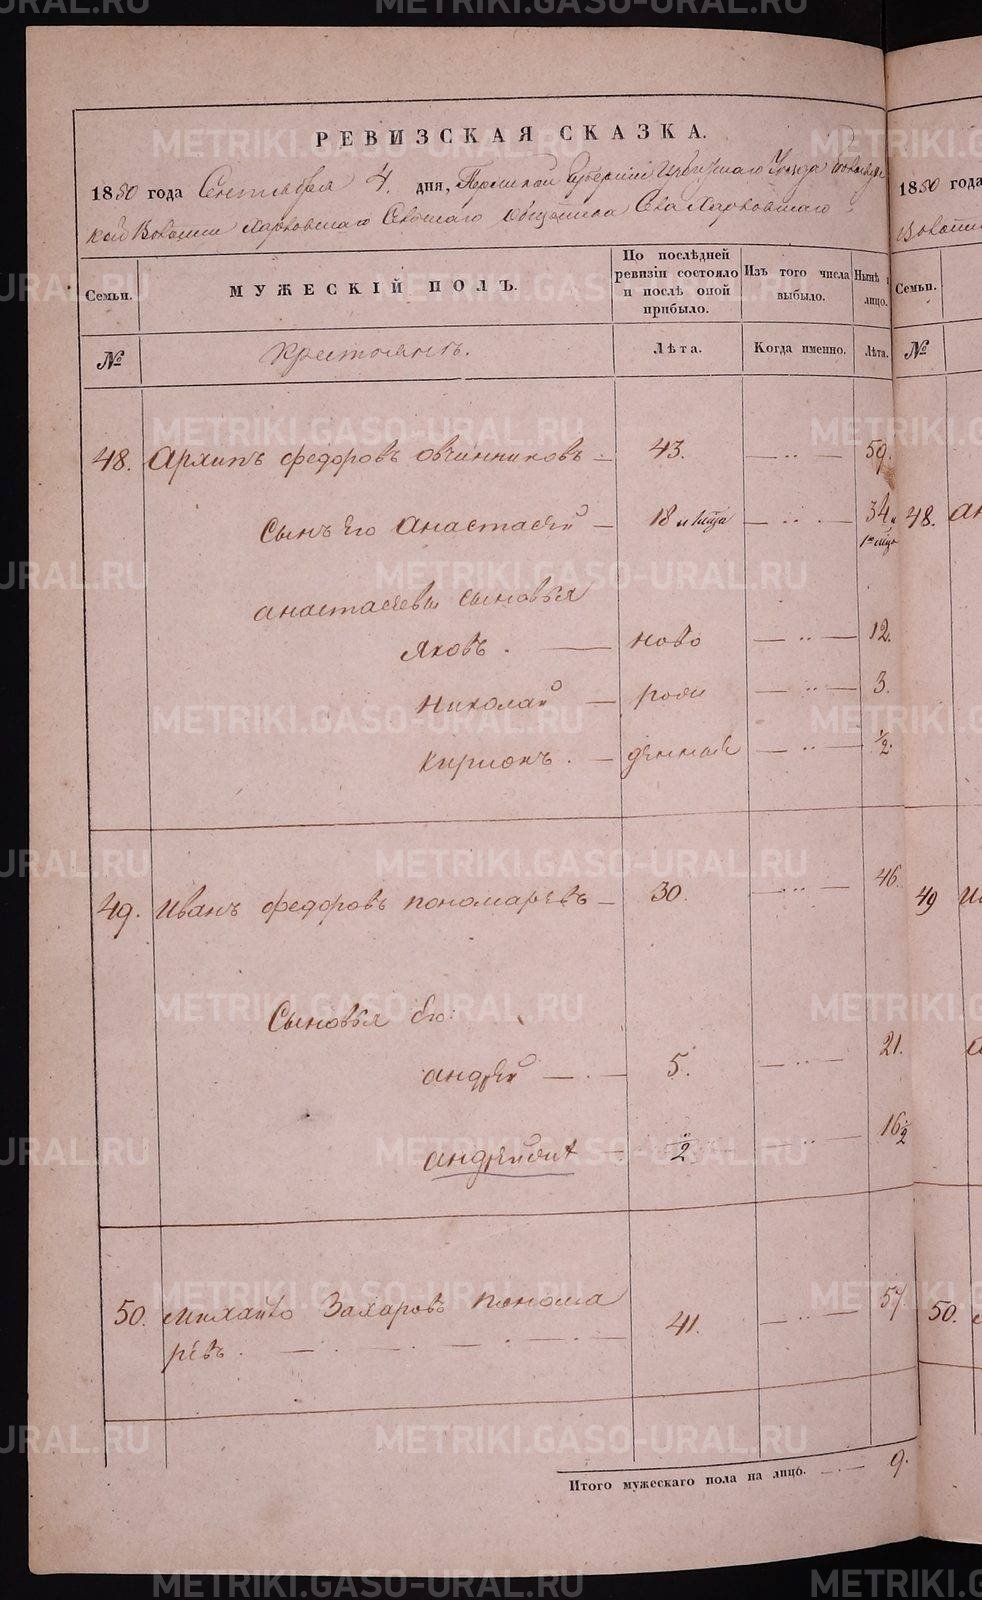 РЕВИЗСКАЯ СКАЗКА.
1850 года Сентября 4. дня, Пермской Губернии Ирбитскаго Уезда
кой Волости Харловскаго Сельскаго общества Села Харловскаго
Семьи.
МУЖЕСКІЙ ПОЛЪ.
По послѣдней ревизіи состояло и послѣ оной прибыло.
Изъ того числа выбыло.
Нынѣ лицо.
№
Крестьянъ.
Лѣта.
Когда именно.
Лѣта.
48. Архипъ Федоровъ Овчинниковъ – 43. — „ — 59.
Сынъ Его Анастасей – 18 — „ — 34
Анастасеевы сыновья
Яковъ . — ново — „ — 12.
Николай – рож — „ — 3.
Кирионъ . – денные — „ — 1/2.
49. Иванъ Федоровъ Пономаревъ – 30. — „ — 46.
Сыновья Его:
Андрей — . — 5. — „ — 21.
2 — „ — 16 1/2
50. Михайло Захаровъ Понома 41. — „ — 57.
ревъ.
Итого мужескаго пола на лицо. — . — 9.
1850 года
Волости
Семьи.
№
48.
49
50.
METRIKI.GASO-URAL.RU